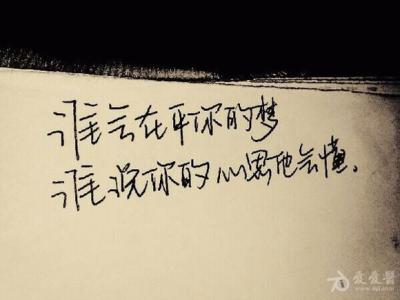 谁会在乎你的梦
谁说你的心思他会懂.
爱爱医
www.iiyi.com